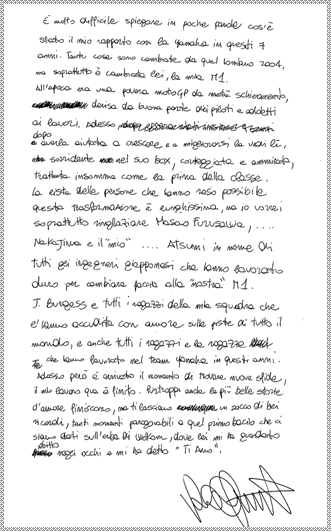 È molto difficile spiegare in poche parole cos'è
stato il mio rapporto con la yamaha in questi 7
anni. Tante cose sono cambiate da quel lontano 2004,
ma soprattutto è cambiata lei, la mia M1.
All'epoca era una povera motoGP da metà schieramento,
derisa da buona parte dei piloti e addetti
ai lavori. Adesso
dopo
averla aiutata a crescere e a migliorarsi la vedi lì,
sorridente nel suo box, corteggiata e ammirata,
trattata insomma come la prima della classe.
la lista delle persone che hanno reso possibile
questa trasformazione è lunghissima, ma io vorrei
soprattutto ringraziare Masao Furusawa, ....
Nakajima e il "mio" .... Atsumi in nome di
tutti gli ingegneri giapponesi che hanno lavorato
duro per cambiare faccia alla "nostra" M1.
J. Burgess e tutti i ragazzi della mia squadra che
l'hanno accudita con amore sulle piste di tutto il
mondo, e anche tutti i ragazzi e le ragazze
che hanno lavorato nel team yamaha in questi anni.
Adesso però è arrivato il momento di trovare nuove sfide,
il mio lavoro qua è finito. Purtroppo anche le più belle storie
d'amore finiscono, ma ti lasciano un sacco di bei
ricordi, tanti momenti paragonabili a quel primo bacio che ci
siamo dati sull'erba di Welkom, dove lei mi ha guardato
dritto
negli occhi e mi ha detto "Ti Amo".